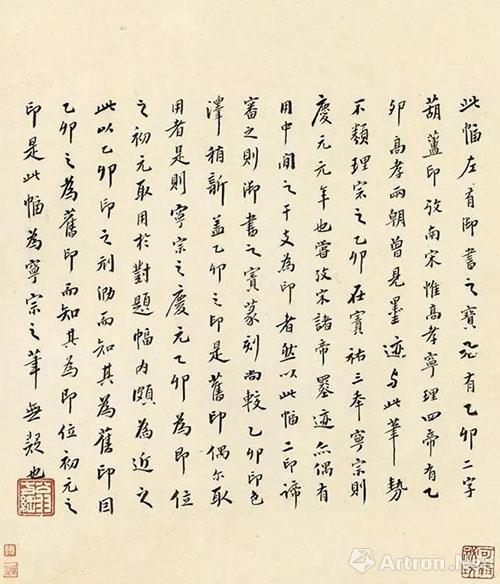 此幅左有御書之寶有乙卯二字
葫蘆印攷南宋惟高孝寧理四帝有乙
卯高孝兩朝曾見墨迹与此筆勢
不類理宗之乙卯在寶祐三年寧宗則
慶元元年也嘗攷宋諸帝墨迹亦偶有
用中間之干支為印者然以此幅二印諦
審之則御書之寶篆刻尚較乙卯印色
澤稍新蓋乙卯之印是舊印偶尓取
用者是則寧宗之慶元乙卯為即位
之初元取用於對題幅内頗為近之
此以乙卯印之泐而知其為舊印因
乙卯之為舊印而知其為即位初元之
印是此幅為寧宗之筆無疑也
Artron.Net